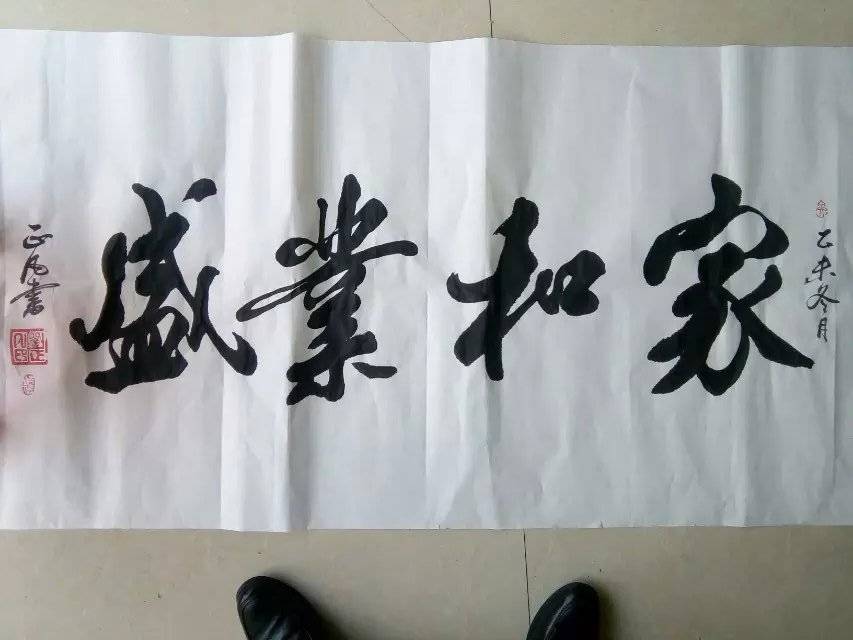 乙未冬月
家和業盛
正凡書